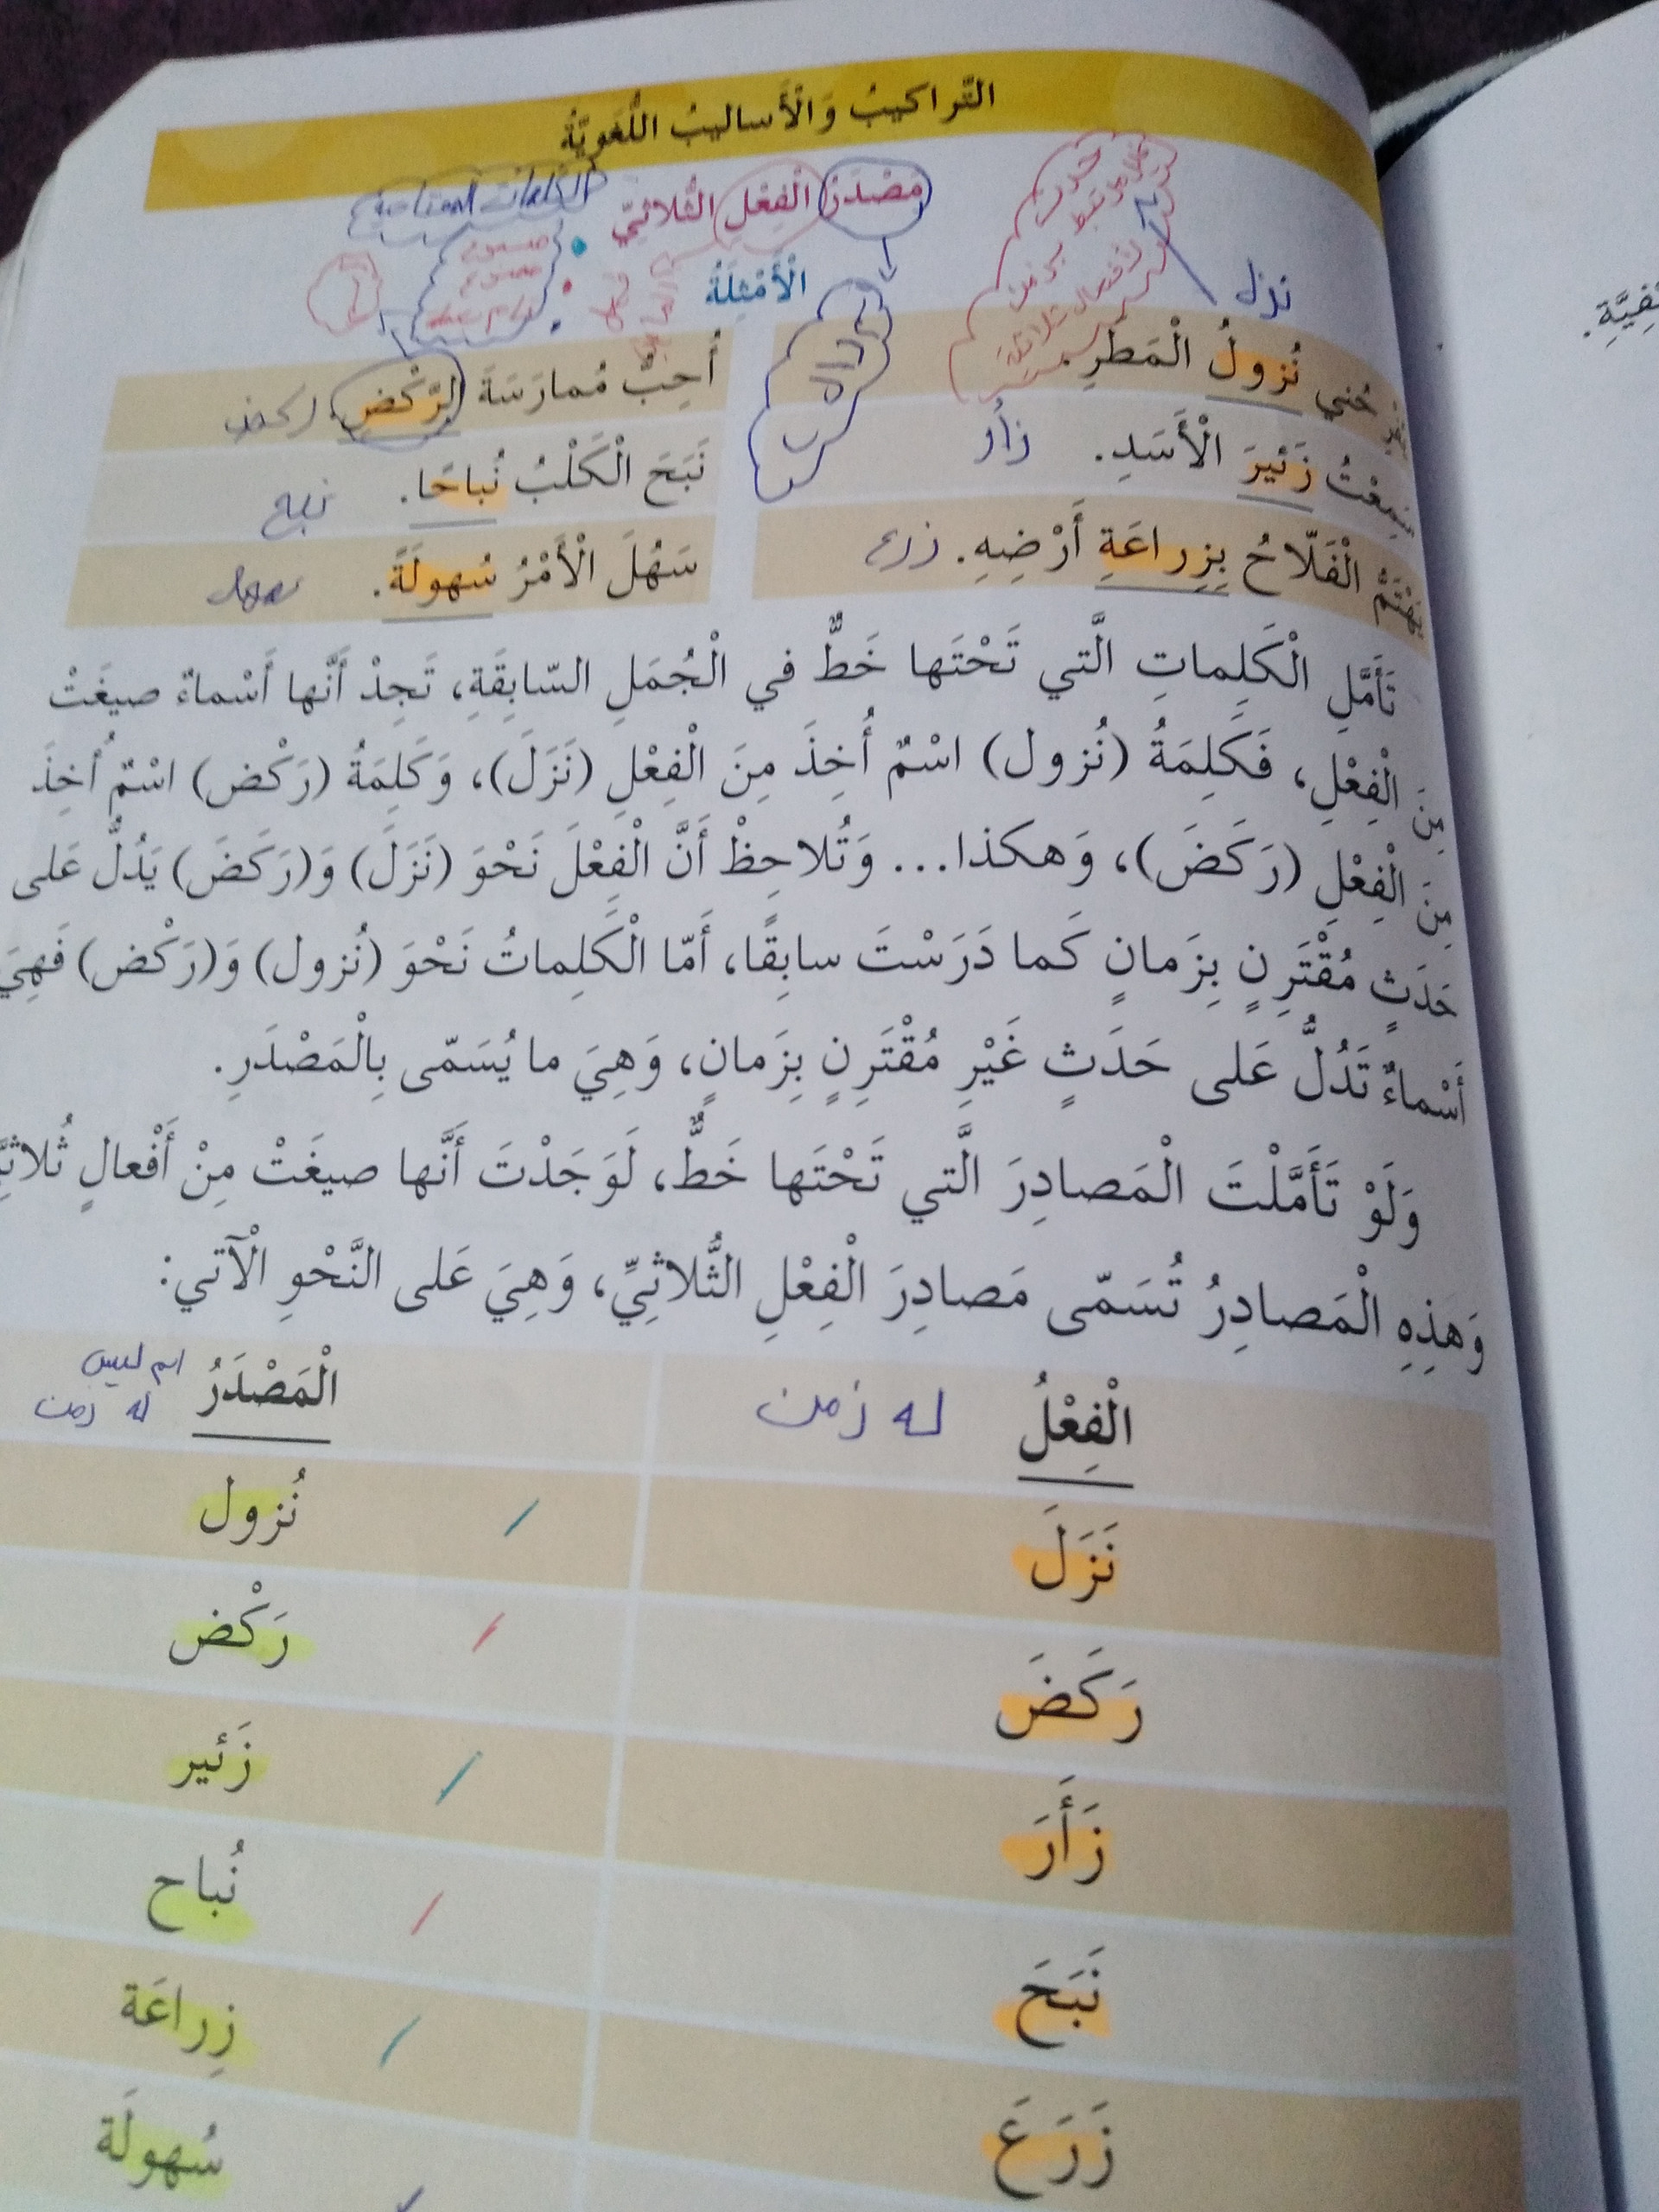 التَّراكيبُ وَالْأَساليبُ اللُّغَوِيَّةُ
مَصْدَرُ الْفِعْلِ الثُّلاثيِّ
الْأَمْثِلَةُ
نزل
نُزولُ الْمَطَرِ.
أُحِبُّ مُمارَسَةَ الرَّكْضِ. ركض
سَمِعْتُ زَئيرَ الْأَسَدِ. زأر
نَبَحَ الْكَلْبُ نُباحًا. نبح
يَهْتَمُّ الْفَلّاحُ بِزِراعَةِ أَرْضِهِ. زرع
سَهُلَ الْأَمْرُ سُهولَةً. سهل
تَأَمَّلِ الْكَلِماتِ الَّتي تَحْتَها خَطٌّ في الْجُمَلِ السّابِقَةِ، تَجِدْ أَنَّها أَسْماءٌ صيغَتْ
مِنَ الْفِعْلِ، فَكَلِمَةُ (نُزول) اسْمٌ أُخِذَ مِنَ الْفِعْلِ (نَزَلَ)، وَكَلِمَةُ (رَكْض) اسْمٌ أُخِذَ
مِنَ الْفِعْلِ (رَكَضَ)، وَهكذا... وَتُلاحِظْ أَنَّ الْفِعْلَ نَحْوَ (نَزَلَ) وَ(رَكَضَ) يَدُلُّ عَلى
حَدَثٍ مُقْتَرِنٍ بِزَمانٍ كَما دَرَسْتَ سابِقًا، أَمّا الْكَلِماتُ نَحْوَ (نُزول) وَ(رَكْض) فَهِيَ
أَسْماءٌ تَدُلُّ عَلى حَدَثٍ غَيْرِ مُقْتَرِنٍ بِزَمانٍ، وَهِيَ ما يُسَمّى بِالْمَصْدَرِ.
وَلَوْ تَأَمَّلْتَ الْمَصادِرَ الَّتي تَحْتَها خَطٌّ، لَوَجَدْتَ أَنَّها صيغَتْ مِنْ أَفْعالٍ
وَهذِهِ الْمَصادِرُ تُسَمّى مَصادِرَ الْفِعْلِ الثُّلاثِيِّ، وَهِيَ عَلى النَّحْوِ الْآتي:
الْفِعْلُ له زمن
الْمَصْدَرُ اسم ليس
له زمن
نَزَلَ نُزول
رَكَضَ رَكْض
زَأَرَ زَئير
نَبَحَ نُباح
زَرَعَ زِراعَة
سُهولَة